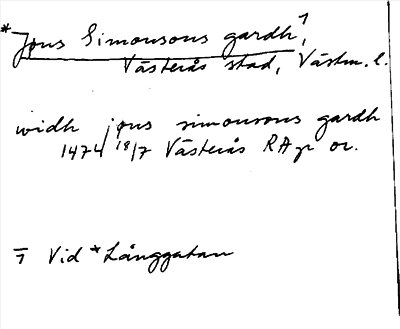 *Jøns Simonsons gardh⁊,
Västerås stad, Västm. l.
widh jøns simonsons gardh
1474 18/7 Västerås RAp or.
⁊ Vid *Långgatan